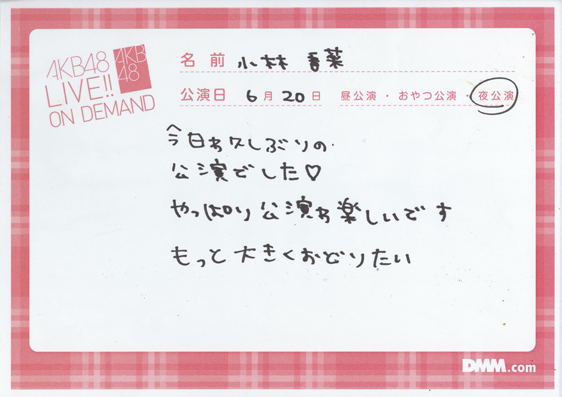 AKB48
LIVE!!
ON DEMAND
AKB
48
名前 小林 香菜
公演日 6月20日 昼公演・おやつ公演・夜公演
今日は久しぶりの
公演でした♡
やっぱり公演は楽しいです
もっと大きくおどりたい
DMM.com